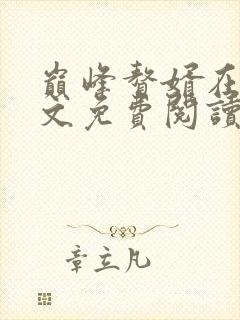 巔峰贅婿在
文免費閱讀
章立凡